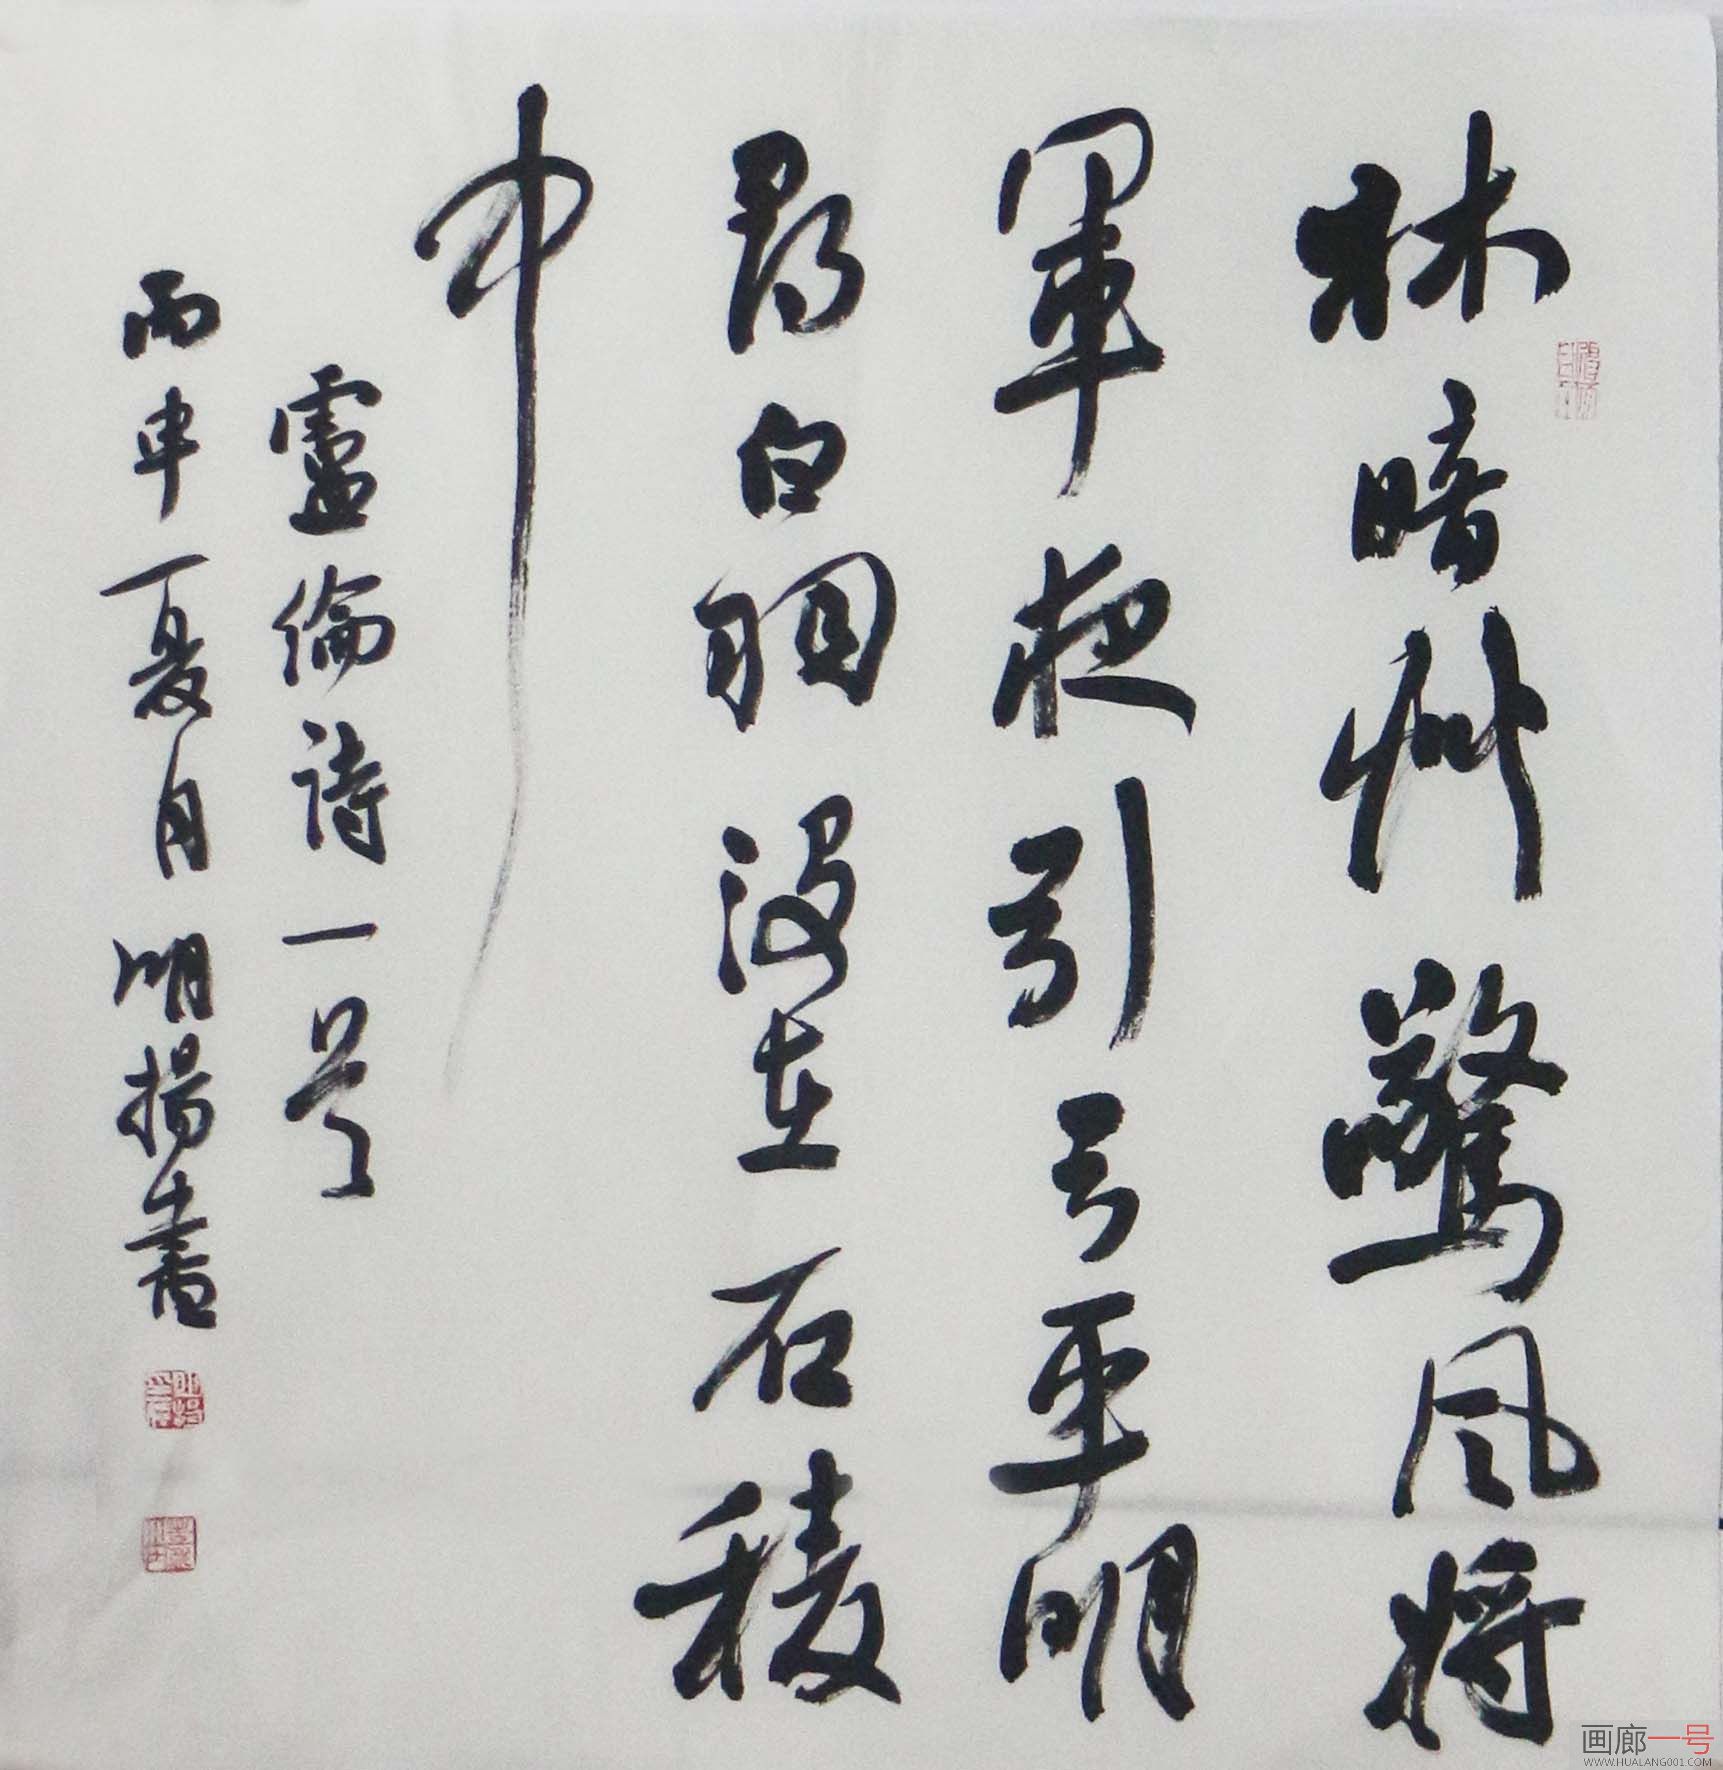 林暗艸驚風将
軍夜引弓平明
尋白羽没在石稜
中
盧倫詩一首
丙申夏月明揚書
画廊一号
WWW.HUALANG001.COM